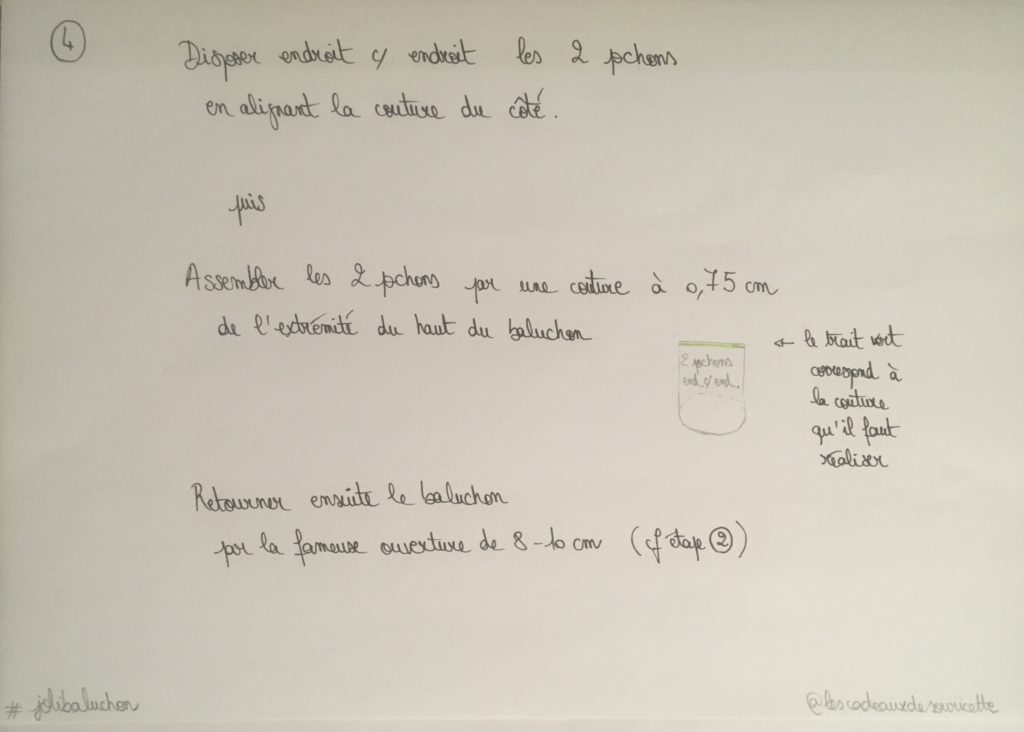 4
Disposer endroit c/ endroit les 2 pchons
en alignant la couture du côté.
puis
Assembler les 2 pchons par une couture à 0,75 cm
de l'extrémité du haut du baluchon
← le trait vert
correspond à
la couture
qu'il faut
réaliser
2 pchons
end. c/ end.
Retourner ensuite le baluchon
par la fameuse ouverture de 8-10 cm (cf étape 2)
# jolibaluchon
@lescadeauxdesouricette